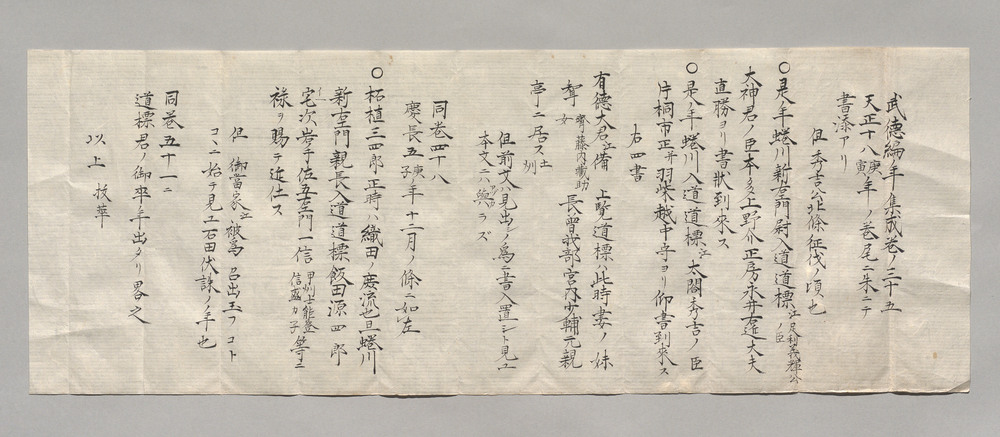 武德編年集成卷ノ三十五
天正十八庚寅年ノ卷尾ニ朱ニテ
書添アリ
但秀吉公北條征伐ノ頃也
○是年蜷川新右衛門尉入道道標江足利義輝公ノ臣
大神君ノ臣本多上野介正房永井右近大夫
直勝ヨリ書狀到來ス
○是年蜷川入道道標江太閤秀吉ノ臣
片桐市正并羽柴越中守ヨリ仰書到來ス
右四書
有德大君江備上覽道標ハ此時妻ノ妹
聟齋藤內蔵助女長曾我部宮內少輔元親
亭ニ居ス土州
但前文ハ見出シノ爲ニ書入置シト見ユ
本文ニハ無ラズ
同卷四十八
慶長五庚子年十二月ノ條ニ如左
○柘植三四郎正時ハ織田ノ庶流也且蜷川
新右門親長入道道標飯田源四郎
宅次岩手佐五左門一信甲州上能登信盛カ子等ニ
祿ヲ賜テ近仕ス
但御當家江被爲召出玉フコト
コヽニ始テ見ユ石田伏誅ノ年也
同卷五十一ニ
道標君ノ御卒年出タリ畧之
以上拔萃